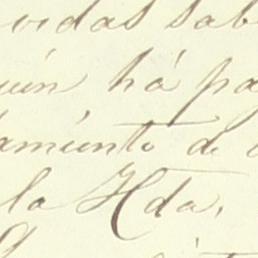 vidas sab
uien há pa
amiento de
la Hda.